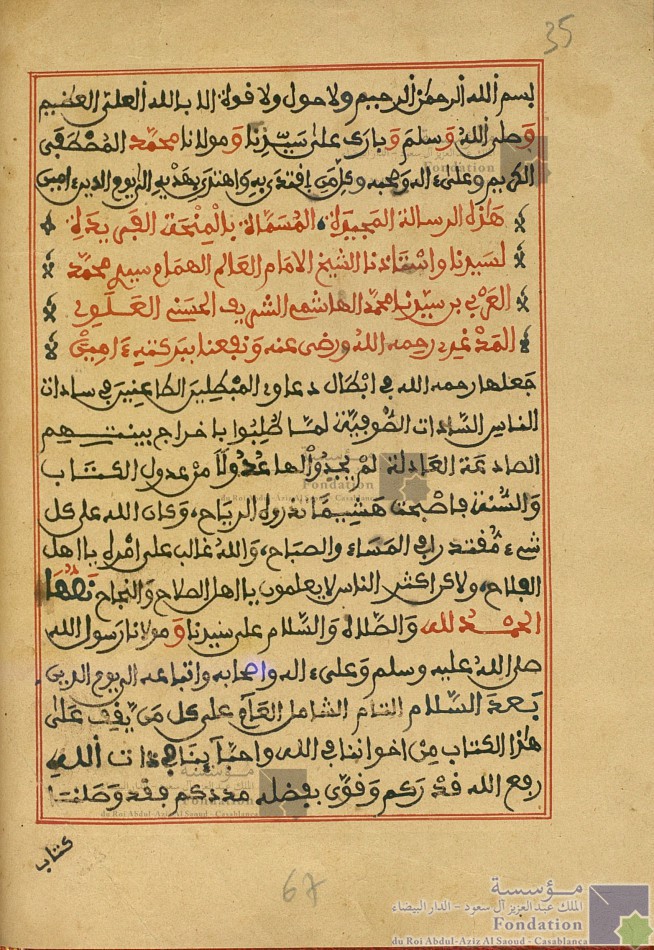 35
بسم الله الرحمن الرحيم ولا حول ولا قوة الا بالله العلي العظيم
وصلى الله وسلم وبارك على سيدنا ومولانا محمد المصطفى
الكريم وعلى ءاله وصحبه وكل من اقتدى به واهتدى بهديه الى يوم الدين ءامين
هذه الرسالة المجيولة المسماة بالمنحة الفريدية
لسيدنا واستاذنا الشيخ الامام العالم الهمام سيدي محمد
العربي بن سيدنا محمد الهاشمي الشريف الحسني العلوي
المدغري رحمه الله ورضي عنه ونفعنا ببركته ءامين
جعلها رحمه الله في ابطال دعاوي المبطلين الطاعنين في سادات
الناس السادات الصوفية لما طلبوا باخراج بينتهم
الصادعة العادلة لم يجدوا لها عدولا من عدول الكتاب
والسنة فاصبحت هشيما تذروه الرياح، وكان الله على كل
شيء مقتدرا في المساء والصباح، والله غالب على امره يا اهل
الفلاح، ولاكن اكثر الناس لا يعلمون يا اهل الصلاح والنجاح نصها
الحمد لله والصلاة والسلام على سيدنا ومولانا رسول الله
صلى الله عليه وسلم وعلى ءاله واصحابه واتباعه الى يوم الدين
بعد السلام التام الشامل العام على كل من يقف على
هذا الكتاب من اخواننا في الله واحبابنا في ذات الله
رفع الله قدركم وقوى بفضله مددكم فقد وصلنا
كتاب
67
مؤسسة
الملك عبد العزيز آل سعود - الدار البيضاء
Fondation
du Roi Abdul-Aziz Al Saoud - Casablanca